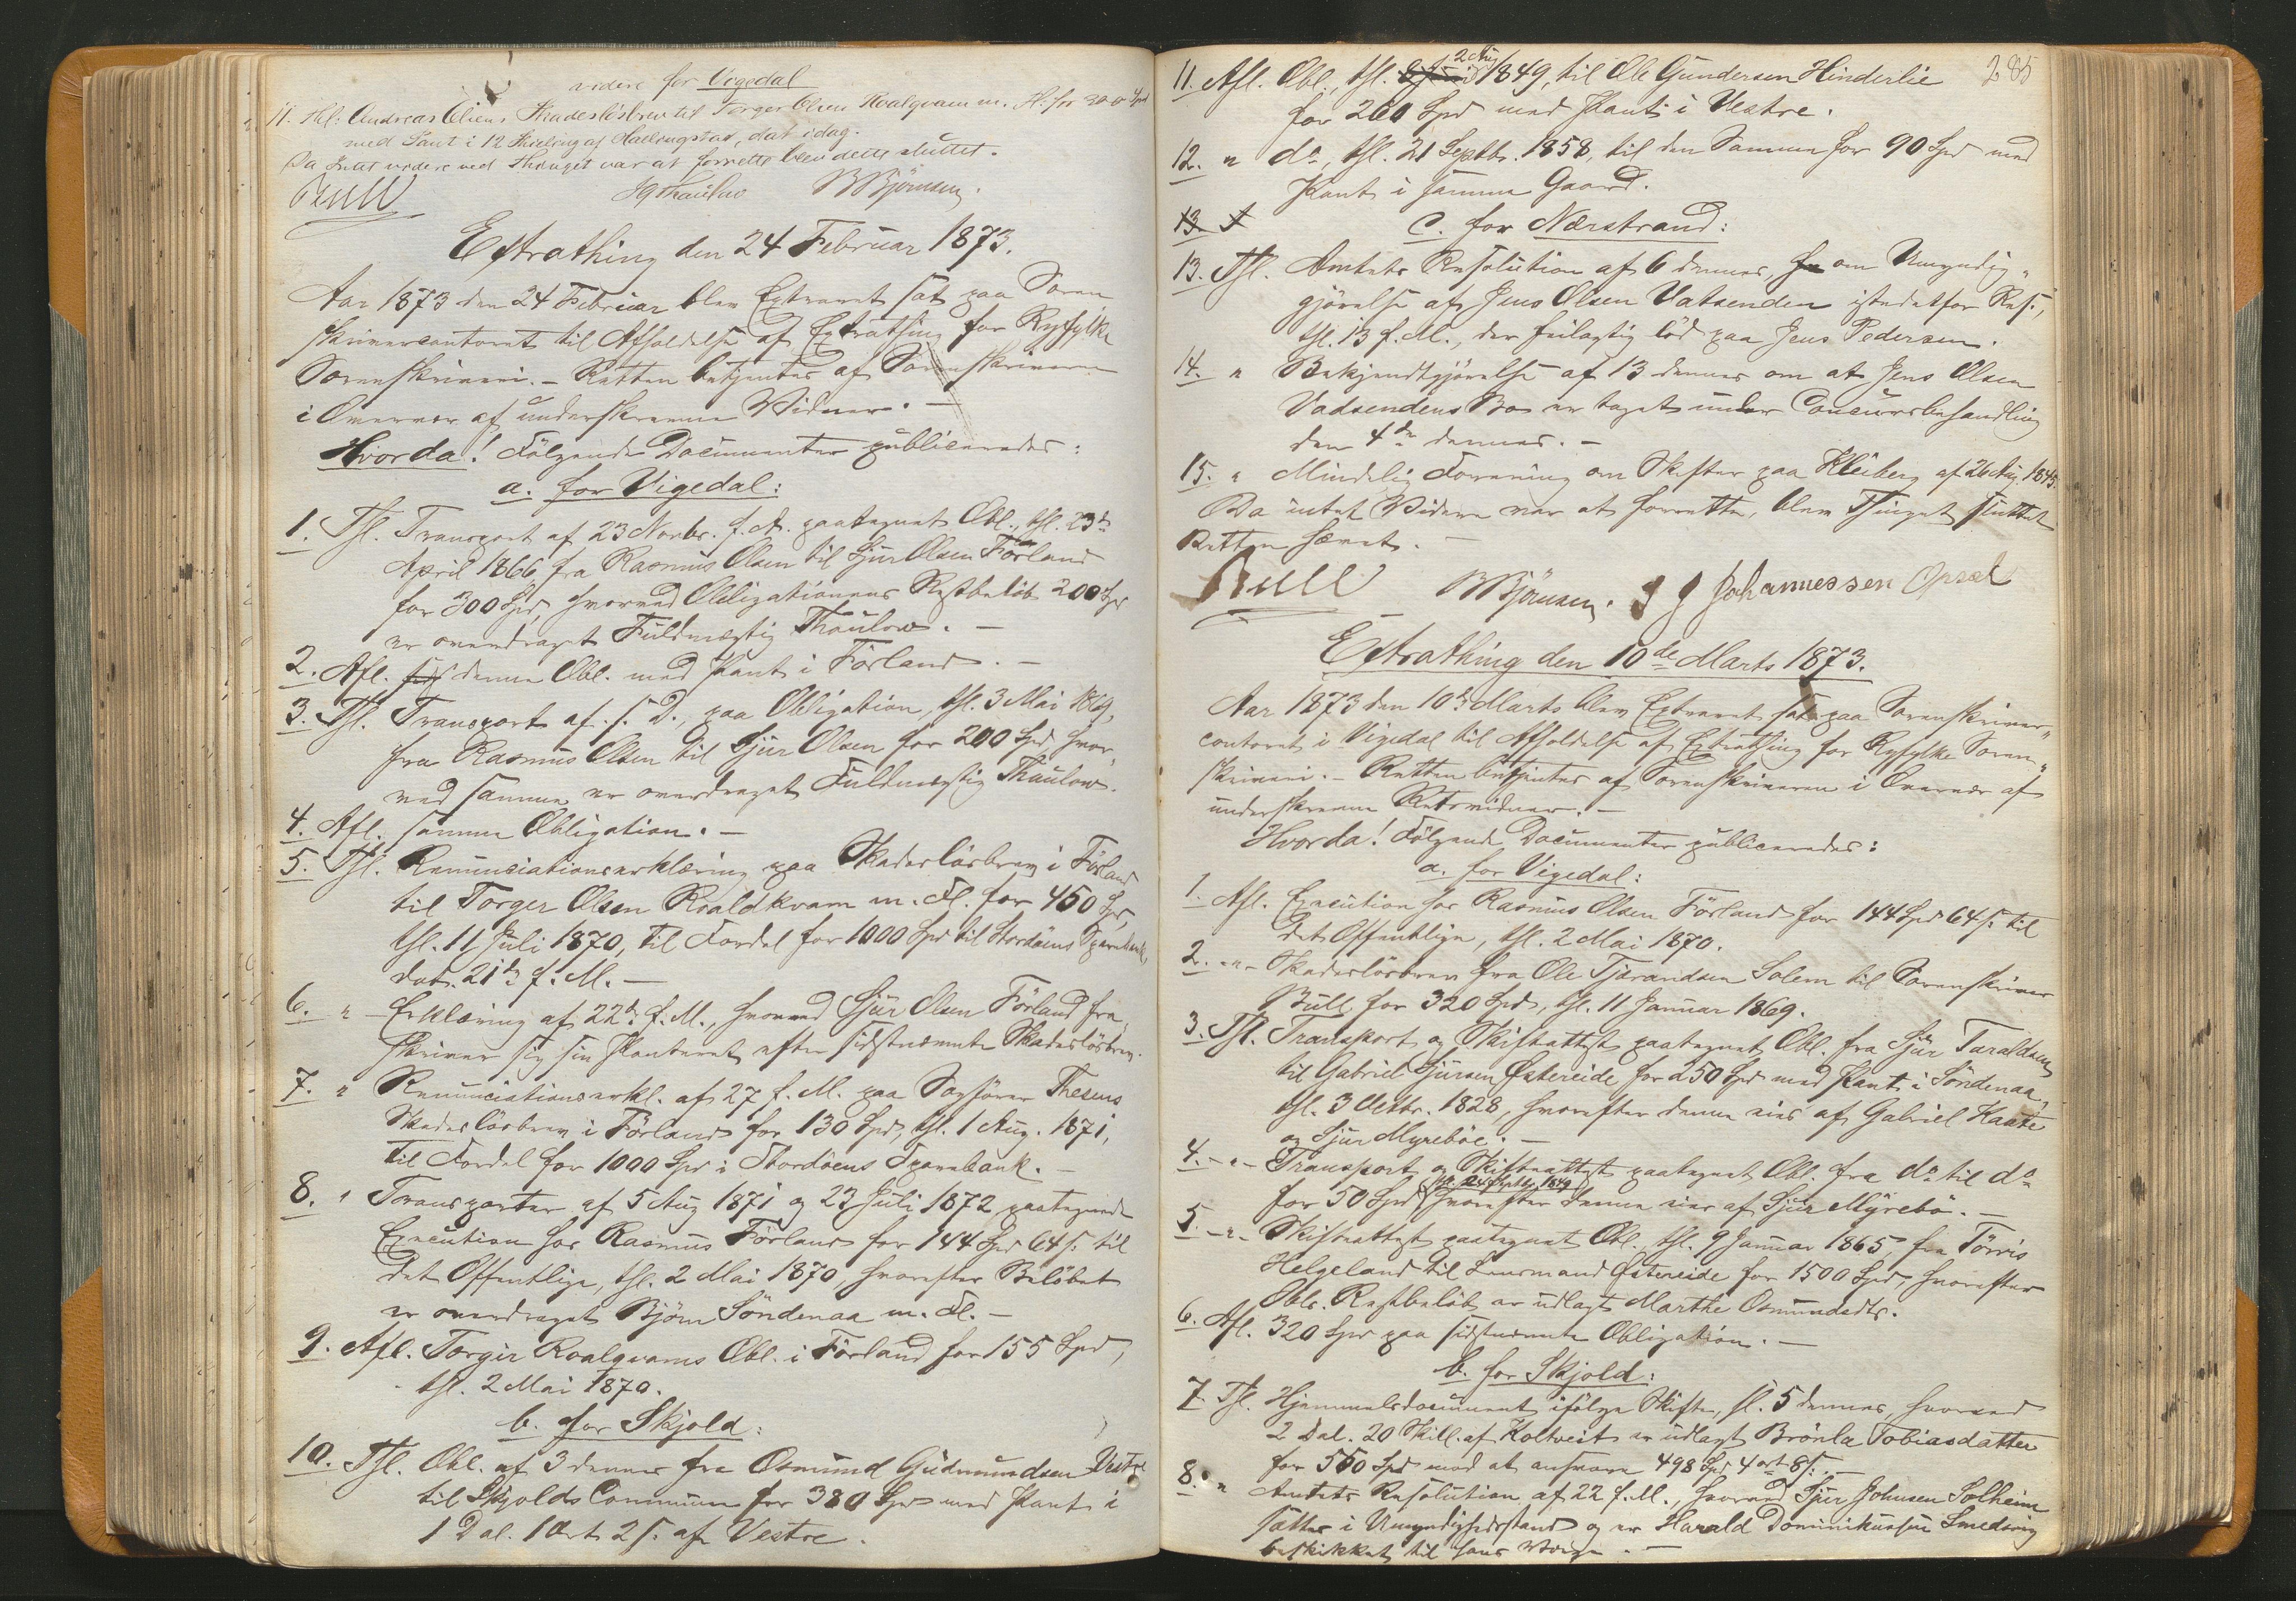 videre for Vigedal
11. Thl: Andreas Olsens Skadesløsbrev til Torger Olsen Roalqvam m. Fl. for 300 Spd
med Pant i 12 Skilling af Hallingstad, dat. idag.
Da Intet videre ved Thinget var at forrette blev dette sluttet.
Bull SgThaulow BBjörnsen.
Extrathing den 24 Februar 1873.
Aar 1873 den 24 Februar blev Extraret sat paa Soren
skrivercontoret til Afholdelse af Extrathing for Ryfylke
Sorenskriveri. – Retten betjentes af Sorenskriveren
i Overvær af underskrevne Vidner. –
Hvorda! Følgende Documenter publiceredes:
a. for Vigedal:
1. Thl. Transport af 23 Novbr. f. A. paategnet Obl., thl. 23de
April 1866 fra Rasmus Olsen til Sjur Olsen Førland
for 300 Spd, hvorved Obligationens Restbeløb 200 Spd
er overdraget Fuldmægtig Thaulow. –
2. Afl. denne Obl. med Pant i Førland. –
3. Thl. Transport af s. D. paa Obligation, thl. 3 Mai 1869,
fra Rasmus Olsen til Sjur Olsen for 200 Spd, hvor„
ved samme er overdraget Fuldmægtig Thaulow.
4. Afl. samme Obligation. –
5. Thl. Renunciationserklæring paa Skadesløsbrev i Førland
til Torger Olsen Roaldkvam m. Fl. for 450 Spd,
thl. 11 Juli 1870, til Fordel for 1000 Spd til Stordøens Sparebank,
dat. 21de f. M. –
6. " – Erklæring af 22de f. M., hvorved Sjur Olsen Førland fra
skriver sig sin Panteret efter sidstnævnte Skadesløsbrev.
7. " Renunciationserkl. af 27 f. M. paa Sagfører Thesens
Skadesløsbrev i Førland for 130 Spd, thl. 1 Aug. 1871,
til Fordel for 1000 Spd i Stordøens Sparebank. –
8. " Transporter af 5 Aug 1871 og 23 Juli 1872 paategnede
Execution hos Rasmus Førland for 144 Spd 64 s. til
det Offentlige, thl. 2 Mai 1870, hvorefter Beløbet
er overdraget Bjørn Söndenaa m. Fl. –
9. Afl. Torger Roalqvams Obl. i Førland for 155 Spd,
thl. 2 Mai 1870.
b. for Skjold:
10. Thl. Obl. af 3 dennes fra Osmund Gudmundsen Vestre
til Skjolds Commune for 380 Spd med Pant i
1 Dal. 1 Ort 2 s. af Vestre.
285
11. Afl. Obl., thl. 2 Aug 1849, til Ole Gundersen Hinderlie
for 260 Spd med Pant i Vestre.
12. " do, thl. 21 Septbr. 1858, til den Samme for 90 Spd med
Pant i samme Gaard.
13
c. for Nærstrand:
13. Thl. Amtets Resolution af 6 dennes, om Umyndig„
gjørelse af Jens Olsen Vatsenden istedetfor Res.,
thl. 13 f. M., der feilagtig lød paa Jens Pedersen.
14. " Bekjendtgjørelse af 13 dennes om at Jens Olsen
Vadsendens Bo er taget under Concursbehandling
den 4de dennes. –
15. " Mindelig Forening om Skifter paa Kleiberg af 26 Aug. 1845.
Da intet Videre var at forrette, blev Thinget sluttet
Retten hævet. –
Bull BBjörnsen. J J Johannessen Opsal
Extrathing den 10de Marts 1873.
Aar 1873 den 10de Marts blev Extraret sat paa Sorenskriver„
contoret i Vigedal til Afholdelse af Extrathing for Ryfylke Soren„
skriveri. – Retten betjentes af Sorenskriveren i Overvær af
underskrevne Retsvidner. –
Hvorda! Følgende Documenter publiceredes:
a. for Vigedal:
1. Afl. Execution hos Rasmus Olsen Førland for 144 Spd 64 s. til
det Offentlige, thl. 2 Mai 1870.
2. -"- Skadesløsbrev fra Ole Tjerandsen Solem til Sorenskriver
Bull for 320 Spd, thl. 11 Januar 1869.
3. Thl. Transport og Skifteattest paategnet Obl. fra Sjur Taraldsen
til Gabriel Sjursen Østereide for 250 Spd med Pant i Söndenaa,
thl. 3 Octbr. 1828, hvorefter denne eies af Gabriel Kaate
og Sjur Myrebøe. –
4. -"- Transport og Skifteattest paategnet Obl. fra do til do
for 50 Spd, thl. Septbr. 1849, hvorefter denne eies af Sjur Myrebø. –
5. -"- Skifteattest paategnet Obl. thl. 9 Januar 1865, fra Törris
Helgeland til Lensmand Østereide for 1500 Spd, hvorefter
Obls. Restbeløb er udlagt Marthe Osmundsdtr.
6. Afl. 320 Spd paa sidstnævnte Obligation. –
b. for Skjold:
7. Thl. Hjemmelsdocument ifølge Skifte, sl. 5 dennes, hvorved
2 Dal. 20 Skill. af Koltveit er udlagt Brönla Tobiasdatter
for 550 Spd mod at ansvare 498 Spd 4 ort 8 s. –
8. " Amtets Resolution af 22 f. M., hvorved Sjur Johnsen Solheim
sættes i Umyndighedsstand og er Harald Dominikussen Smedsvig
beskikket til hans Værge. –